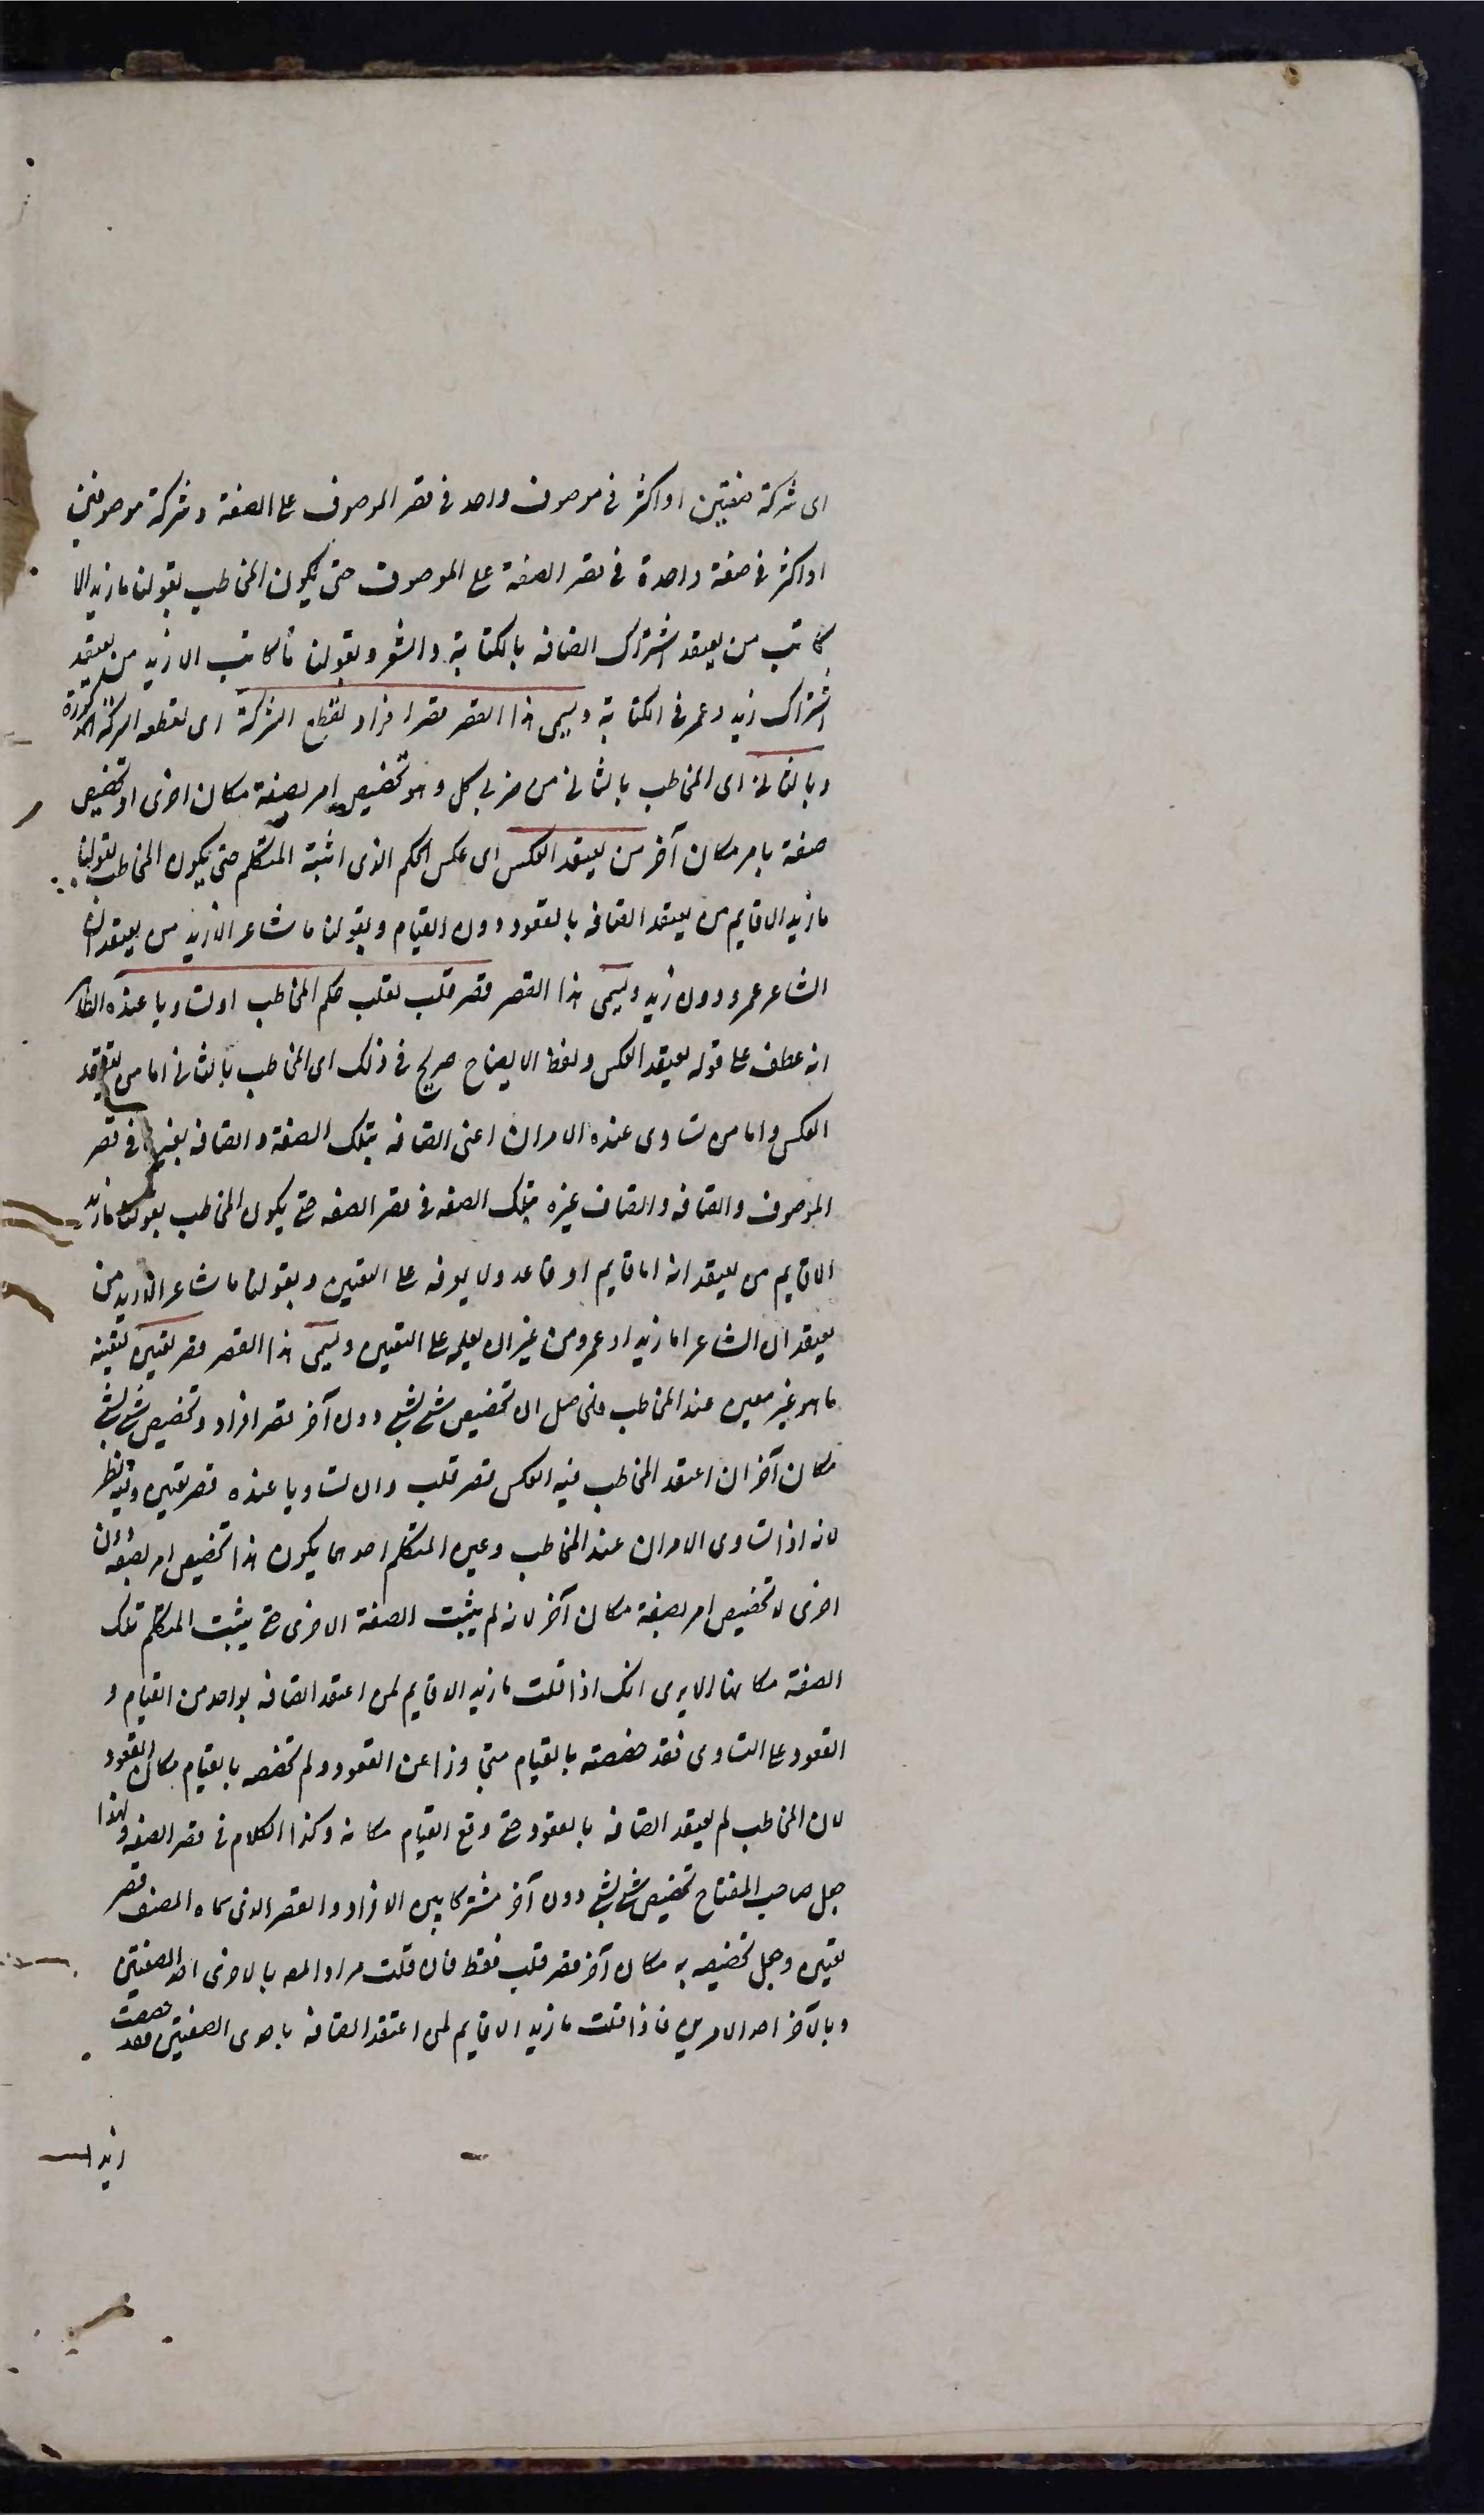 اى شركة صفتين او اكثر فى موصوف واحد فى قصر الموصوف على الصفة و شركة موصوفين
او اكثر فى صفة واحدة فى قصر الصفة على الموصوف حتى يكون المخاطب بقولنا ما زيد الا
كاتب من يعتقد اشتراك اتصافه بالكتابة والشعر وبقولنا ما كاتب الا زيد من يعتقد
اشتراك زيد وعمرو فى الكتابة ويسمى هذا القصر قصر افراد لقطع الشركة اى لقطعه الشركة المذكورة
وبالثانى اى المخاطب بالثانى من ضربى كل وهو تخصيص امر بصفة مكان اخرى او تخصيص
صفة بامر مكان آخر من يعتقد العكس اى عكس الحكم الذى اثبته المتكلم حتى يكون المخاطب بقولنا
ما زيد الا قايم من يعتقد اتصافه بالقعود دون القيام وبقولنا ما شاعر الا زيد من يعتقد ان
الشاعر عمرو دون زيد ويسمى هذا القصر قصر قلب لقلب حكم المخاطب او تساويا عنده الظاهر
انه عطف على قوله يعتقد العكس ولفظ الايضاح صريح فى ذلك اى المخاطب بالثانى اما من يعتقد
العكس واما من تساوى عنده الامران اعنى اتصافه بتلك الصفة واتصافه بغيرها فى قصر
الموصوف واتصافه واتصاف غيره بتلك الصفه فى قصر الصفه حتى يكون المخاطب بقولنا ما زيد
الا قايم من يعتقد انه اما قايم او قاعد ولا يعرفه على التعيين وبقولنا ما شاعر الا زيد من
يعتقد ان الشاعر اما زيد او عمرو من غير ان يعلمه على التعيين ويسمى هذا القصر قصر تعيين لتعيينه
ما هو غير معين عند المخاطب فالحاصل ان تخصيص شئ بشئ دون آخر قصر افراد وتخصيص شئ بشئ
مكان آخر ان اعتقد المخاطب فيه العكس قصر قلب وان تساويا عنده قصر تعيين وفيه نظر
لانه اذا تساوى الامران عند المخاطب وعين المتكلم احدهما يكون هذا تخصيص امر بصفة دون
اخرى لا تخصيص امر بصفة مكان آخر لانه لم يثبت الصفة الاخرى حتى يثبت المتكلم تلك
الصفة مكانها الا يرى انك اذا قلت ما زيد الا قايم لمن اعتقد اتصافه بواحد من القيام و
القعود على التساوى فقد خصصته بالقيام متجاوزا عن القعود ولم تخصصه بالقيام مكان القعود
لان المخاطب لم يعتقد اتصافه بالقعود حتى وقع القيام مكانه وكذا الكلام فى قصر الصفه ولهذا
جعل صاحب المفتاح تخصيص شئ بشئ دون آخر مشتركا بين الافراد والقصر الذى سماه المصنف قصر
تعيين وجعل تخصيصه به مكان آخر قصر قلب فقط فان قلت مراد المص بالاخرى احد الصفتين
وبالآخر احد الامرين فاذا قلت ما زيد الا قايم لمن اعتقد اتصافه باحدى الصفتين فقد خصصت
زيدا